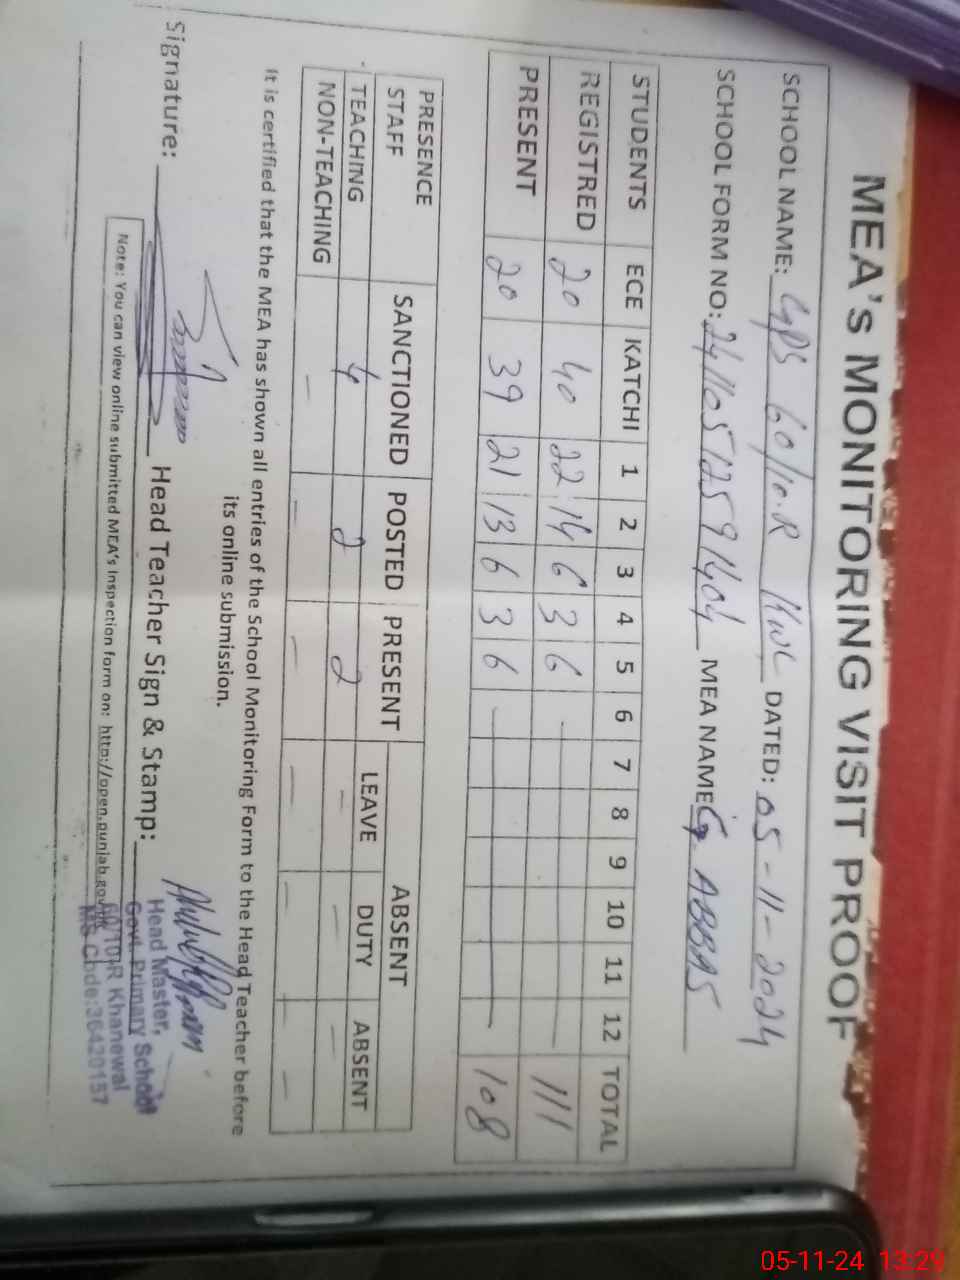 MEA's MONITORING VISIT PROOF
SCHOOL NAME: GPS 60/10.R KWL DATED: 05-11-2024
SCHOOL FORM NO: MEA NAME G. ABBAS
STUDENTS ECE KATCHI 1 2 3 4 5 6 7 8 9 10 11 12 TOTAL
REGISTRED 20 40 22 14 6 3 6 111
PRESENT 20 39 21 13 6 3 6 108
PRESENCE ABSENT
STAFF SANCTIONED POSTED PRESENT LEAVE DUTY ABSENT
TEACHING 4 2 2 — — —
NON-TEACHING — — — — — —
It is certified that the MEA has shown all entries of the School Monitoring Form to the Head Teacher before
its online submission.
Signature: Head Teacher Sign & Stamp:
Head Master,
Govt. Primary School
60/10-R Khanewal
MS Code:36420157
Note: You can view online submitted MEA's Inspection form on: http://open.punjab.gov.pk
05-11-24 13:29